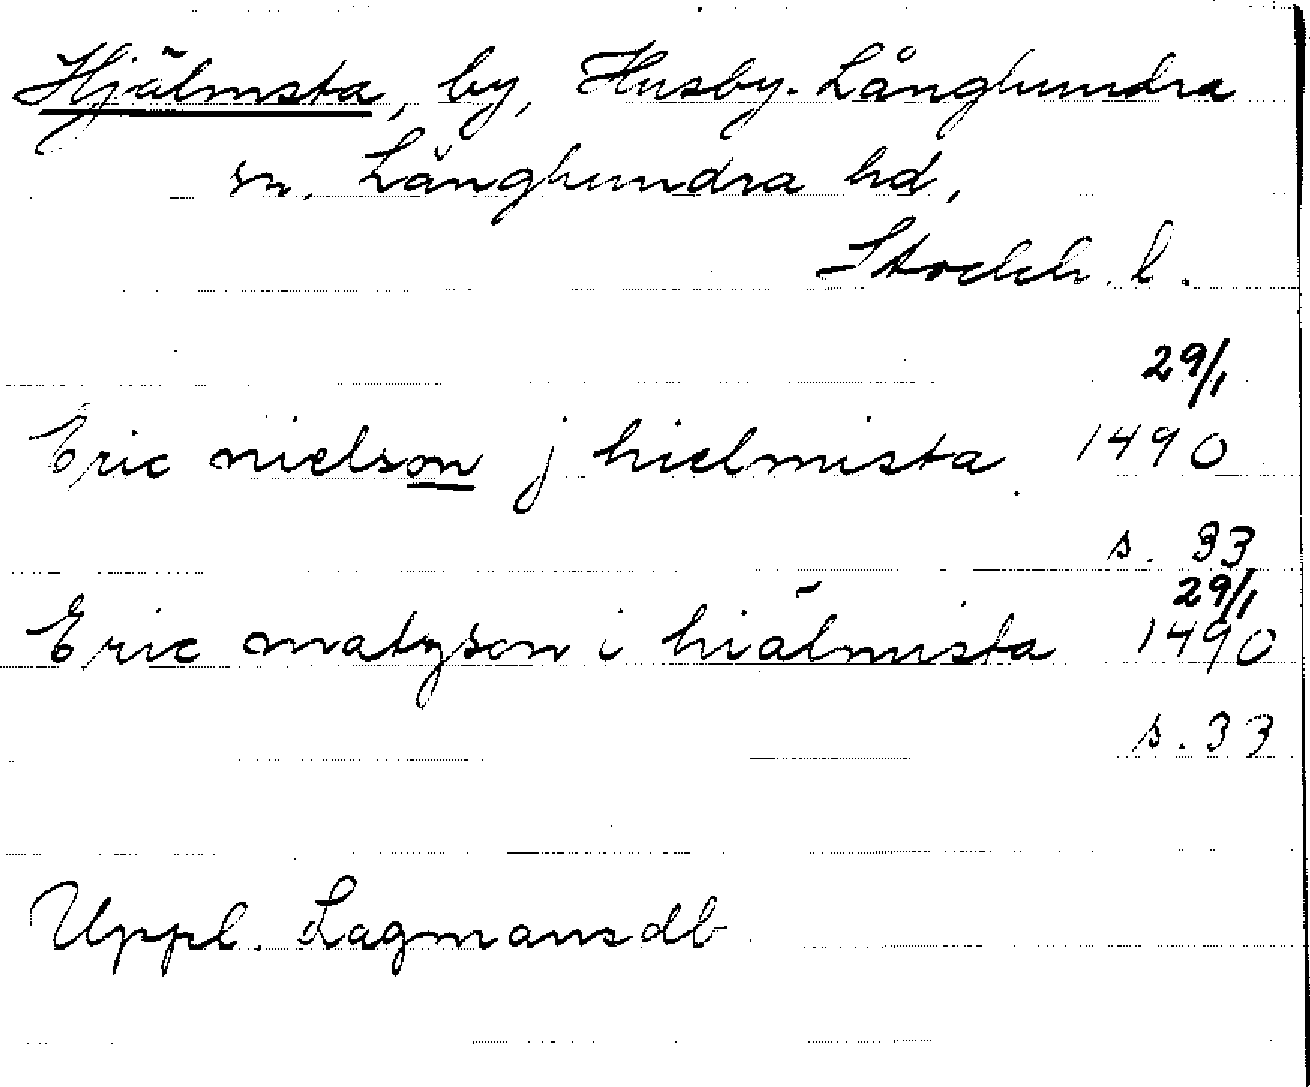 Hjälmsta, by, Husby-Långhundra
sn, Långhundra hd,
Stockh. l.
29/1
Eric nielson j hielmista 1490
s. 33
29/1
Eric matzson i hiälmista 1490
s. 33
Uppl. Lagmansdb